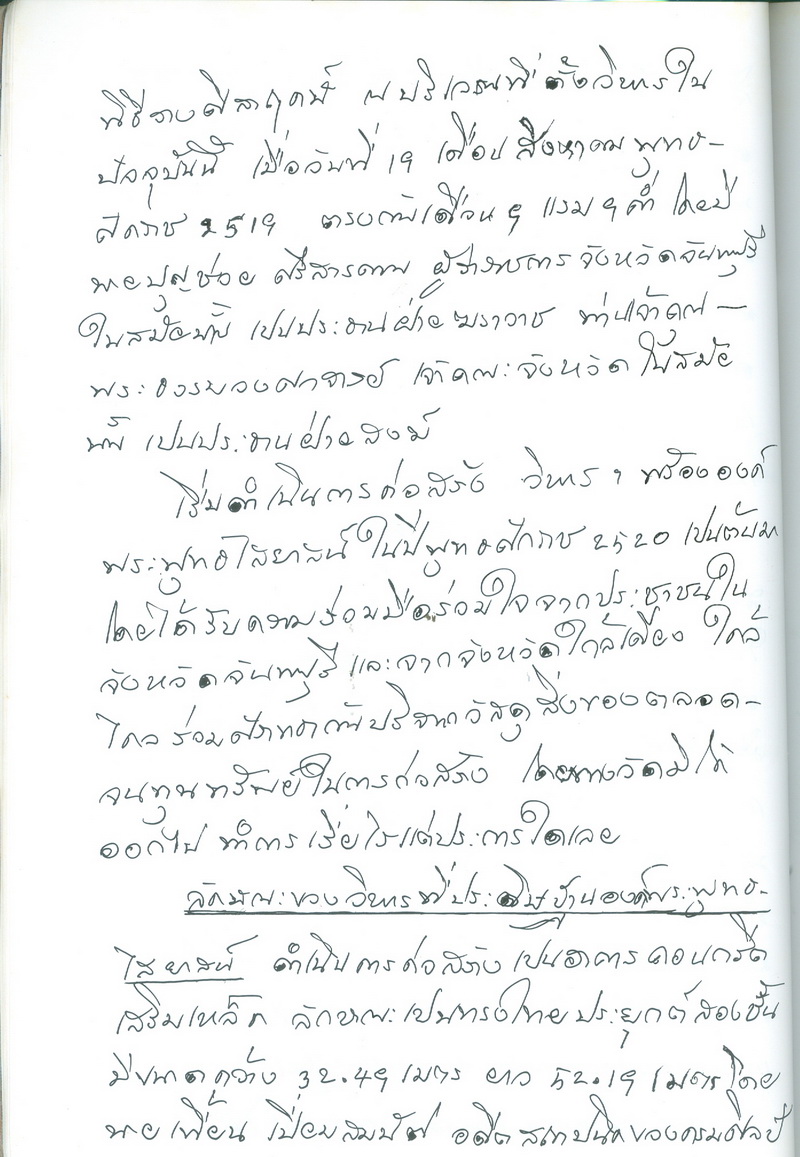 พิธีวางศิลาฤกษ์ ณ บริเวณที่ตั้งวิหารใน
ปัจจุบันนี้ เมื่อวันที่ 19 เดือนสิงหาคม พุทธ-
ศักราช 2519 ตรงกับเดือน 9 แรม 9 ค่ำ โดยมี
นายบุญช่วย ศรีสารคาม ผู้ว่าราชการจังหวัดจันทบุรี
ในสมัยนั้น เป็นประธานฝ่ายฆราวาช ท่านเจ้าคุณ-
พระ เจ้าคณะจังหวัด ในสมัย
นั้น เป็นประธานฝ่ายสงฆ์
เริ่มดำเนินการก่อสร้าง วิหาร ฯ พร้อมองค์
พระพุทธไสยาสน์ ในปีพุทธศักราช 2520 เป็นต้นมา
โดยได้รับความร่วมมือร่วมใจจากประชาชนใน
จังหวัดจันทบุรี และจากจังหวัดใกล้เคียง ใกล้
ไกล ร่วมศรัทธากันบริจาควัสดุสิ่งของตลอด-
จนทุนทรัพย์ในการก่อสร้าง โดยทางวัดมิได้
ออกไป ทำการ เรี่ยไรแต่ประการใดเลย
ลักษณะของวิหารที่ประดิษฐานองค์พระพุทธ-
ไสยาสน์ ดำเนินการก่อสร้างเป็นอาคารคอนกรีต
เสริมเหล็ก ลักษณะเป็นทรงไทยประยุกต์สองชั้น
มีขนาดกว้าง 32.49 เมตร ยาว 52.19 เมตร โดย
นาย เปี่ยมสมบัติ อดีตสถาปนิกของกรมศิลป์